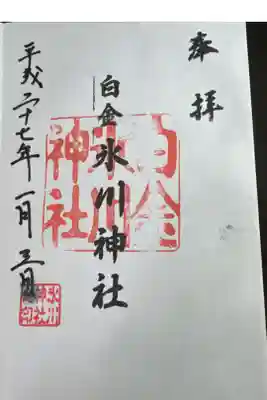 奉拝
白金氷川神社
白金氷川神社
平成二十七年一月三日
氷川神社印